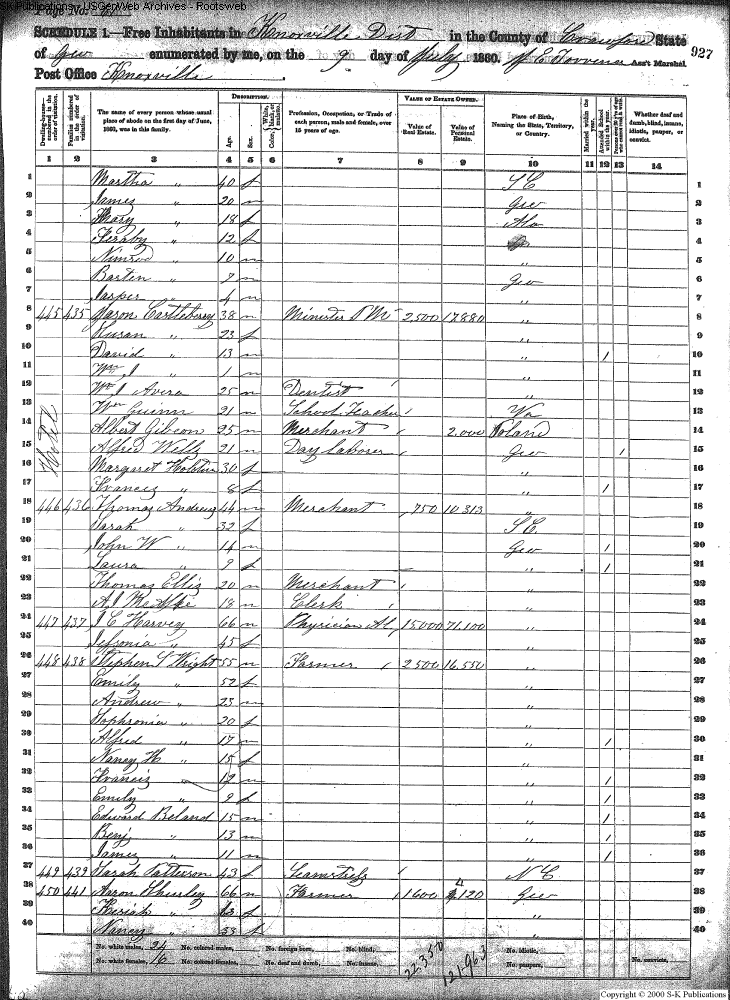 S-K Publications - USGenWeb Archives - Rootsweb
Page No.
SCHEDULE 1.—Free Inhabitants in Knoxville Dist in the County of Crawford State
of Geo enumerated by me, on the 9 day of July 1860. Ass't Marshal. 927
Post Office Knoxville.
DESCRIPTION. VALUE OF ESTATE OWNED.
Dwelling-houses—numbered in the order of visitation.
Families numbered in the order of visitation.
The name of every person whose usual place of abode on the first day of June, 1860, was in this family.
Age.
Sex.
Color, White, black, or mulatto.
Profession, Occupation, or Trade of each person, male and female, over 15 years of age.
Value of Real Estate.
Value of Personal Estate.
Place of Birth, Naming the State, Territory, or Country.
Married within the year.
Attended School within the year.
Whether deaf and dumb, blind, insane, idiotic, pauper, or convict.
1 2 3 4 5 6 7 8 9 10 11 12 13 14
1 Martha " 40 f S C 1
2 James " 20 m Geo 2
3 Mary " 18 f Ala 3
4 " 12 f 4
5 Nimrod " 10 m " 5
6 Barten " 7 m Geo 6
7 Jasper " 4 m " 7
8 445 435 Castleberry 38 m Minister P M 2,500 17,880 " 8
9 Susan " 23 f " 9
10 David " 13 m " / 10
11 Wm J " 1 m " 11
12 Wm J Avera 25 m Dentist / " 12
13 Wm Guinn 21 m School Teacher / Va 13
14 Hotel Albert Gibson 25 m Merchant / 2,000 Poland 14
15 Alfred Wells 21 m Day laborer / Geo / 15
16 Margaret 30 f " 16
17 Frances " 8 f " / 17
18 446 436 Thomas Andrews 44 m Merchant , 750 10 313 " 18
19 Sarah " 32 f S C. 19
20 John W " 14 m Geo / 20
21 Laura " 9 f " / 21
22 Thomas Ellis 20 m Merchant / " 22
23 A J 18 m Clerk / " 23
24 447 437 J C Harvey 66 m Physician 15000 71,100 " 24
25 " 45 f " 25
26 448 438 Stephen Wright 55 m Farmer / 2,500 16,550 " 26
27 Emily " 52 f " 27
28 Andrew " 23 m " 28
29 Sophronia " 20 f " 29
30 Alfred " 17 m " / 30
31 Nancy H " 15 f " 31
32 Francis " 12 m " / 32
33 Emily " 9 f " / 33
34 Edward Beland 15 m " / 34
35 Benj " 13 m " / 35
36 James " 11 m " / 36
37 449 439 Sarah Patterson 43 f Seamstress / N C 37
38 450 441 Aaron 66 m Farmer / 1600 4,120 Geo 38
39 " f " 39
40 Nancy " 33 f " 40
No. white males, 24 No. colored males, No. foreign born, No. blind, 22,350 121,963 No. idiotic,
No. white females, 16 No. colored females, No. deaf and dumb, No. insane, No. paupers, No. convicts,
Copyright © 2000 S-K Publications